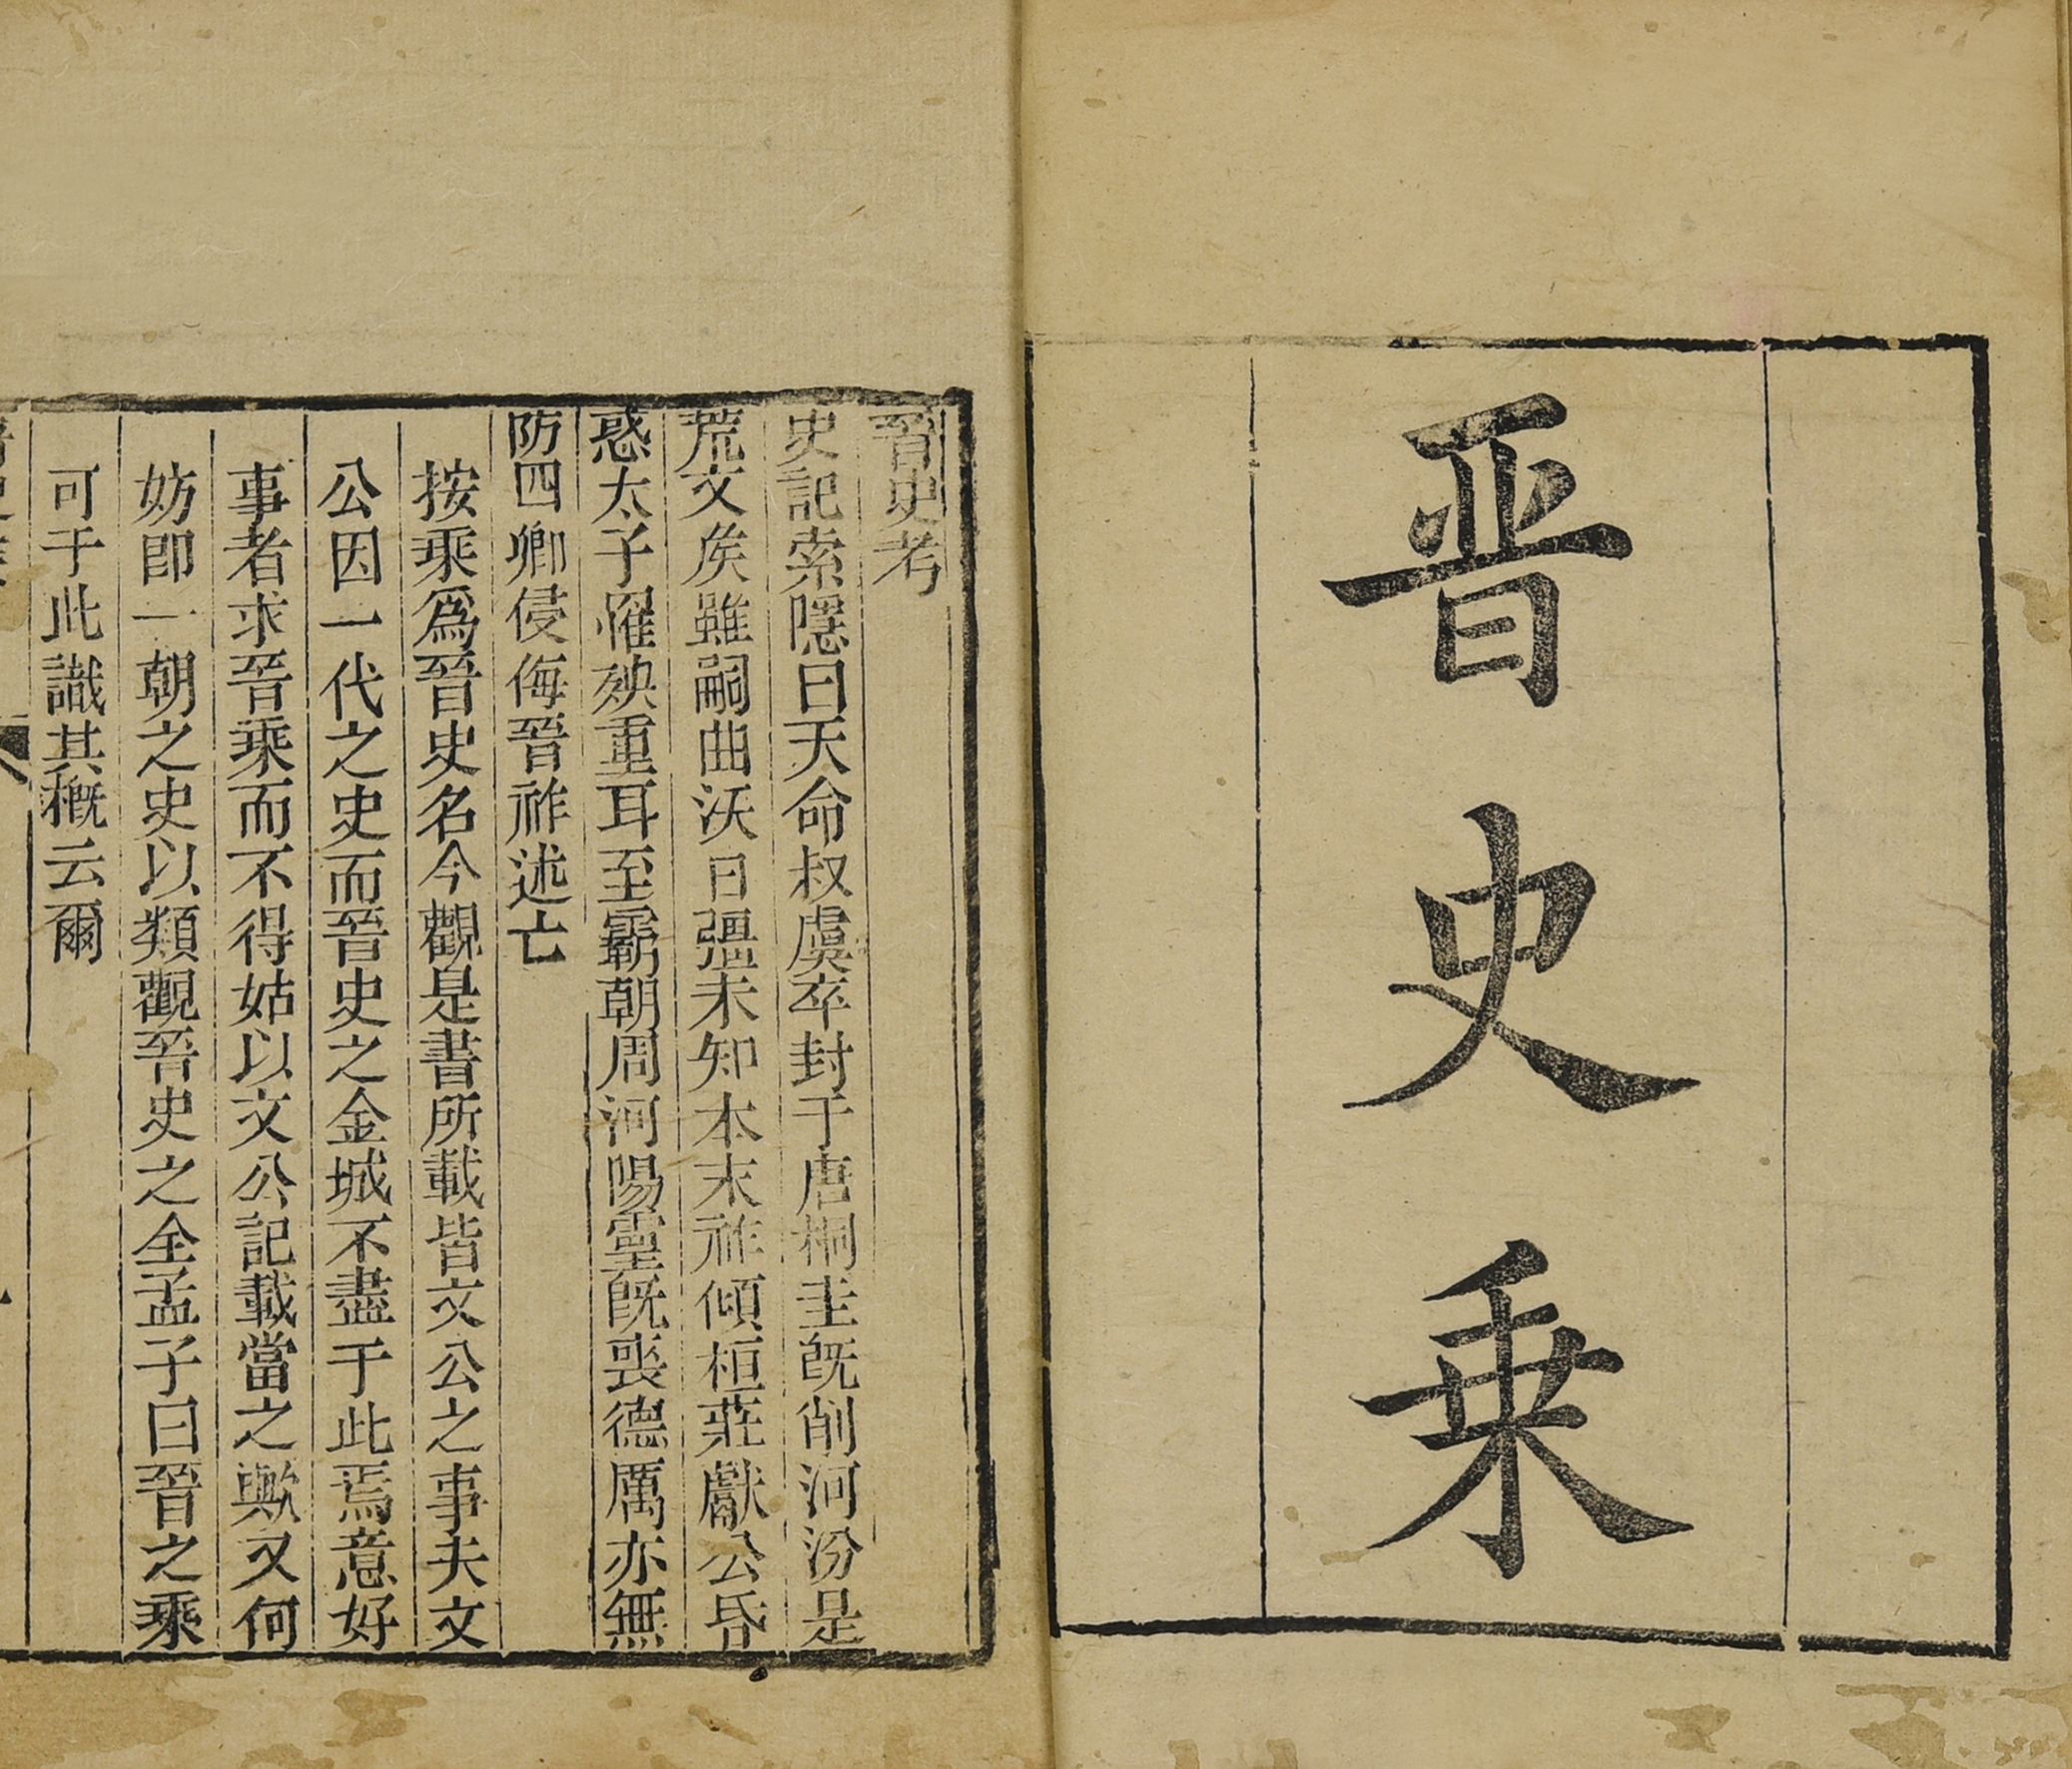 晋史乗
晉史考
史記索隱曰天命叔虞卒封于唐桐圭旣削河汾是
荒文矦雖嗣曲沃日彊未知本末祚傾桓莊獻公昏
惑太子罹殃重耳至霸朝周河陽靈旣喪德厲亦無
防四卿侵侮晉祚述亡
按乘爲晉史名今觀是書所載皆文公之事夫文
公因一代之史而晉史之金城不盡于此焉意好
事者求晉乘而不得姑以文公記載當之歟又何
妨卽一朝之史以類觀晉史之全孟子曰晉之乘
可于此識其槪云爾